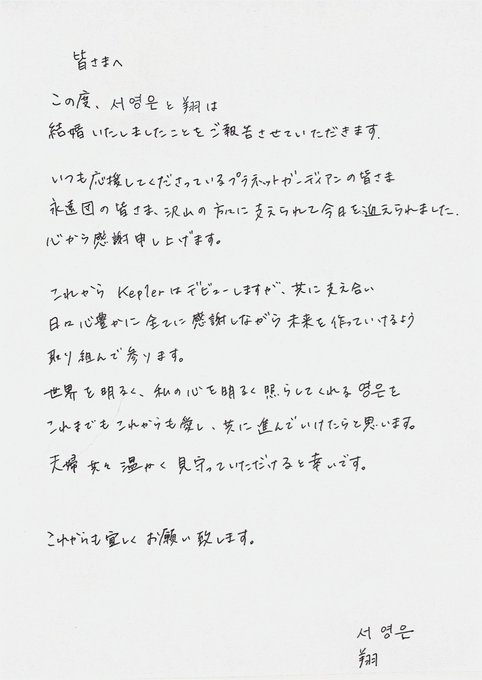 皆さまへ
この度、서영은と翔は
結婚いたしましたことをご報告させていただきます.
いつも応援してくださっているプラネットガーディアンの皆さま
永遠団の皆さま、沢山の方々に支えられて今日を迎えられました.
心から感謝申し上げます。
これから Kep1erはデビューしますが、共に支え合い
日々心豊かに全てに感謝しながら未来を作っていけるよう
取り組んで参ります。
世界を明るく、私の心を明るく照らしてくれる영은を
これまでもこれからも愛し、共に進んでいけたらと思います。
夫婦共々温かく見守っていただけると幸いです。
これからも宜しくお願い致します。
서영은
翔